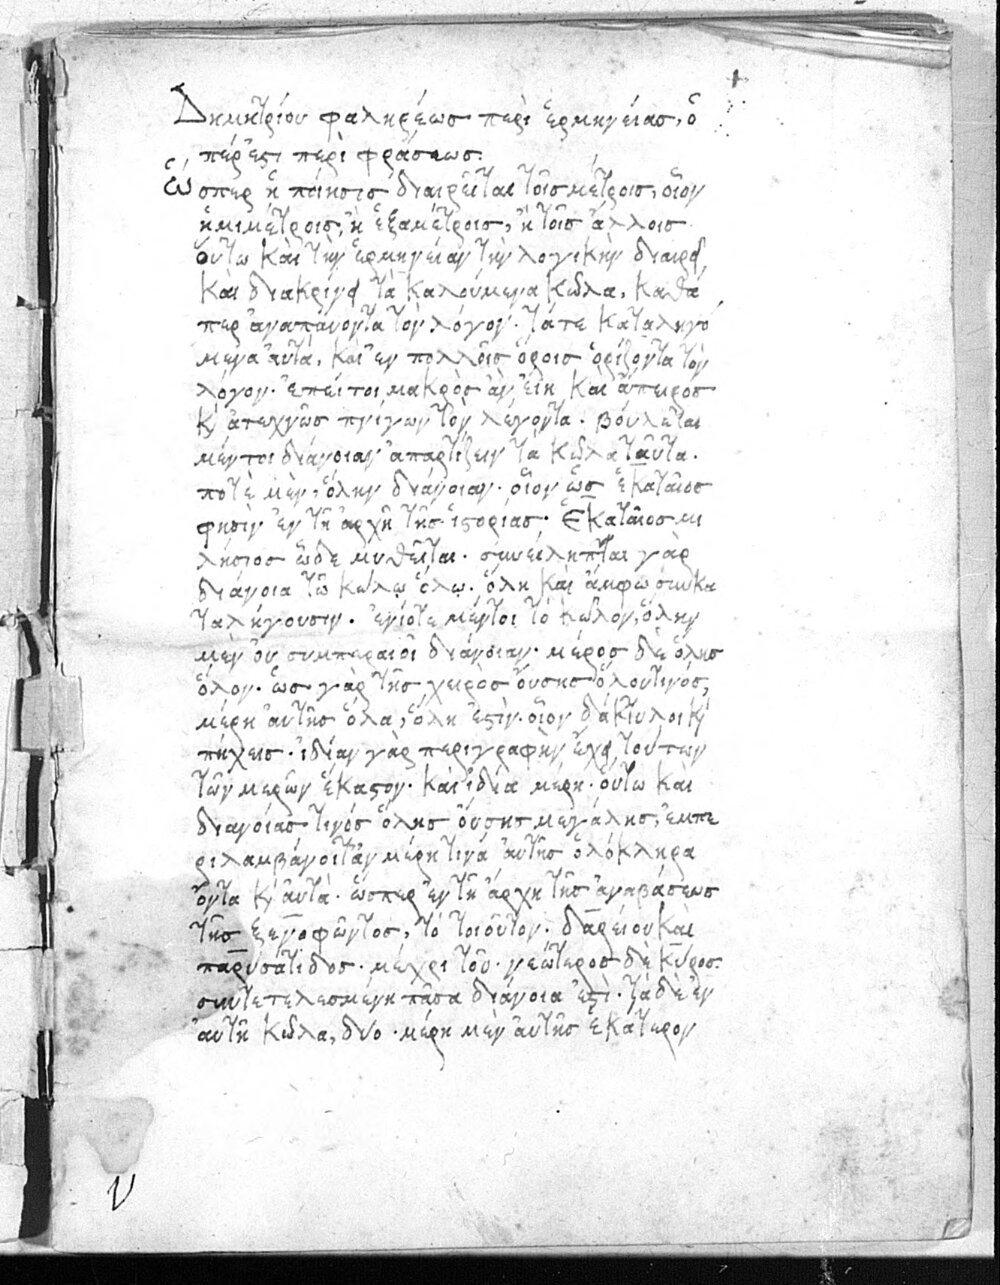 Δημητρίου φαληρέως περὶ ἑρμηνείας, ὅ
πέρ ἐστι περὶ φράσεως.
ὥσπερ ἡ ποίησις διαιρεῖται τοῖς μέτροις, οἷον
ἡμιμέτροις, ἢ ἑξαμέτροις, ἢ τοῖς ἄλλοις.
οὕτω καὶ τὴν ἑρμηνείαν τὴν λογικὴν διαιρεῖ
καὶ διακρίνει τὰ καλούμενα κῶλα, καθά
περ ἀναπαύοντα τὸν λόγον. τά τε καταληγό
μενα αὐτά, καὶ ἐν πολλοῖς ὅροις ὁρίζοντα τὸν
λόγον. ἐπεί τοι μακρὸς ἂν εἴη καὶ ἄπειρος
κ̀ ἀτεχνῶς πνίγων τὸν λέγοντα. βούλεται
μέντοι διάνοιαν ἀπαρτίζειν τὰ κῶλα ταῦτα.
ποτὲ μὲν, ὅλην διάνοιαν. οἷον ὡς ἑκαταῖος
φησὶν ἐν τῇ ἀρχῇ τῆς ἱστορίας. Ἑκαταῖος μι
λήσιος ὧδε μυθεῖται. συνείληπται γὰρ
διάνοια τῷ κώλῳ ὅλῳ. ὅλη καὶ ἄμφω συγκα
ταλήγουσιν. ἐνίοτε μέντοι τὸ κῶλον, ὅλην
μὲν οὐ συμπεραιοῖ διάνοιαν. μέρος δὲ ὅλης
ὅλον. ὡς γὰρ τῆς χειρὸς οὔσης ὅλου τινός,
μέρη αὐτῆς ὅλα, ὅλη ἐστὶν. οἷον δάκτυλοι κ̀
πήχεις. ἰδίαν γὰρ περιγραφὴν ἔχει τούτων
τῶν μερῶν ἕκαστον. καὶ ἴδια μέρη. οὕτω καὶ
διανοίας τινός ὅλης οὔσης μεγάλης, ἐμπε
ριλαμβάνοιτ ἂν μέρη τινὰ αὐτῆς ὁλόκληρα
ὄντα κ̀ αὐτὰ. ὥσπερ ἐν τῇ ἀρχῇ τῆς ἀναβάσεως
τῆς ξενοφῶντος, τὸ τοιοῦτον. δαρείου καὶ
παρυσάτιδος. μέχρι τοῦ. νεώτερος δὲ κῦρος.
συντετελεσμένη πᾶσα διάνοια ἐστὶ. τὰ δὲ ἐν
αὐτῇ κῶλα, δύο. μέρη μὲν αὐτῆς ἑκάτερον